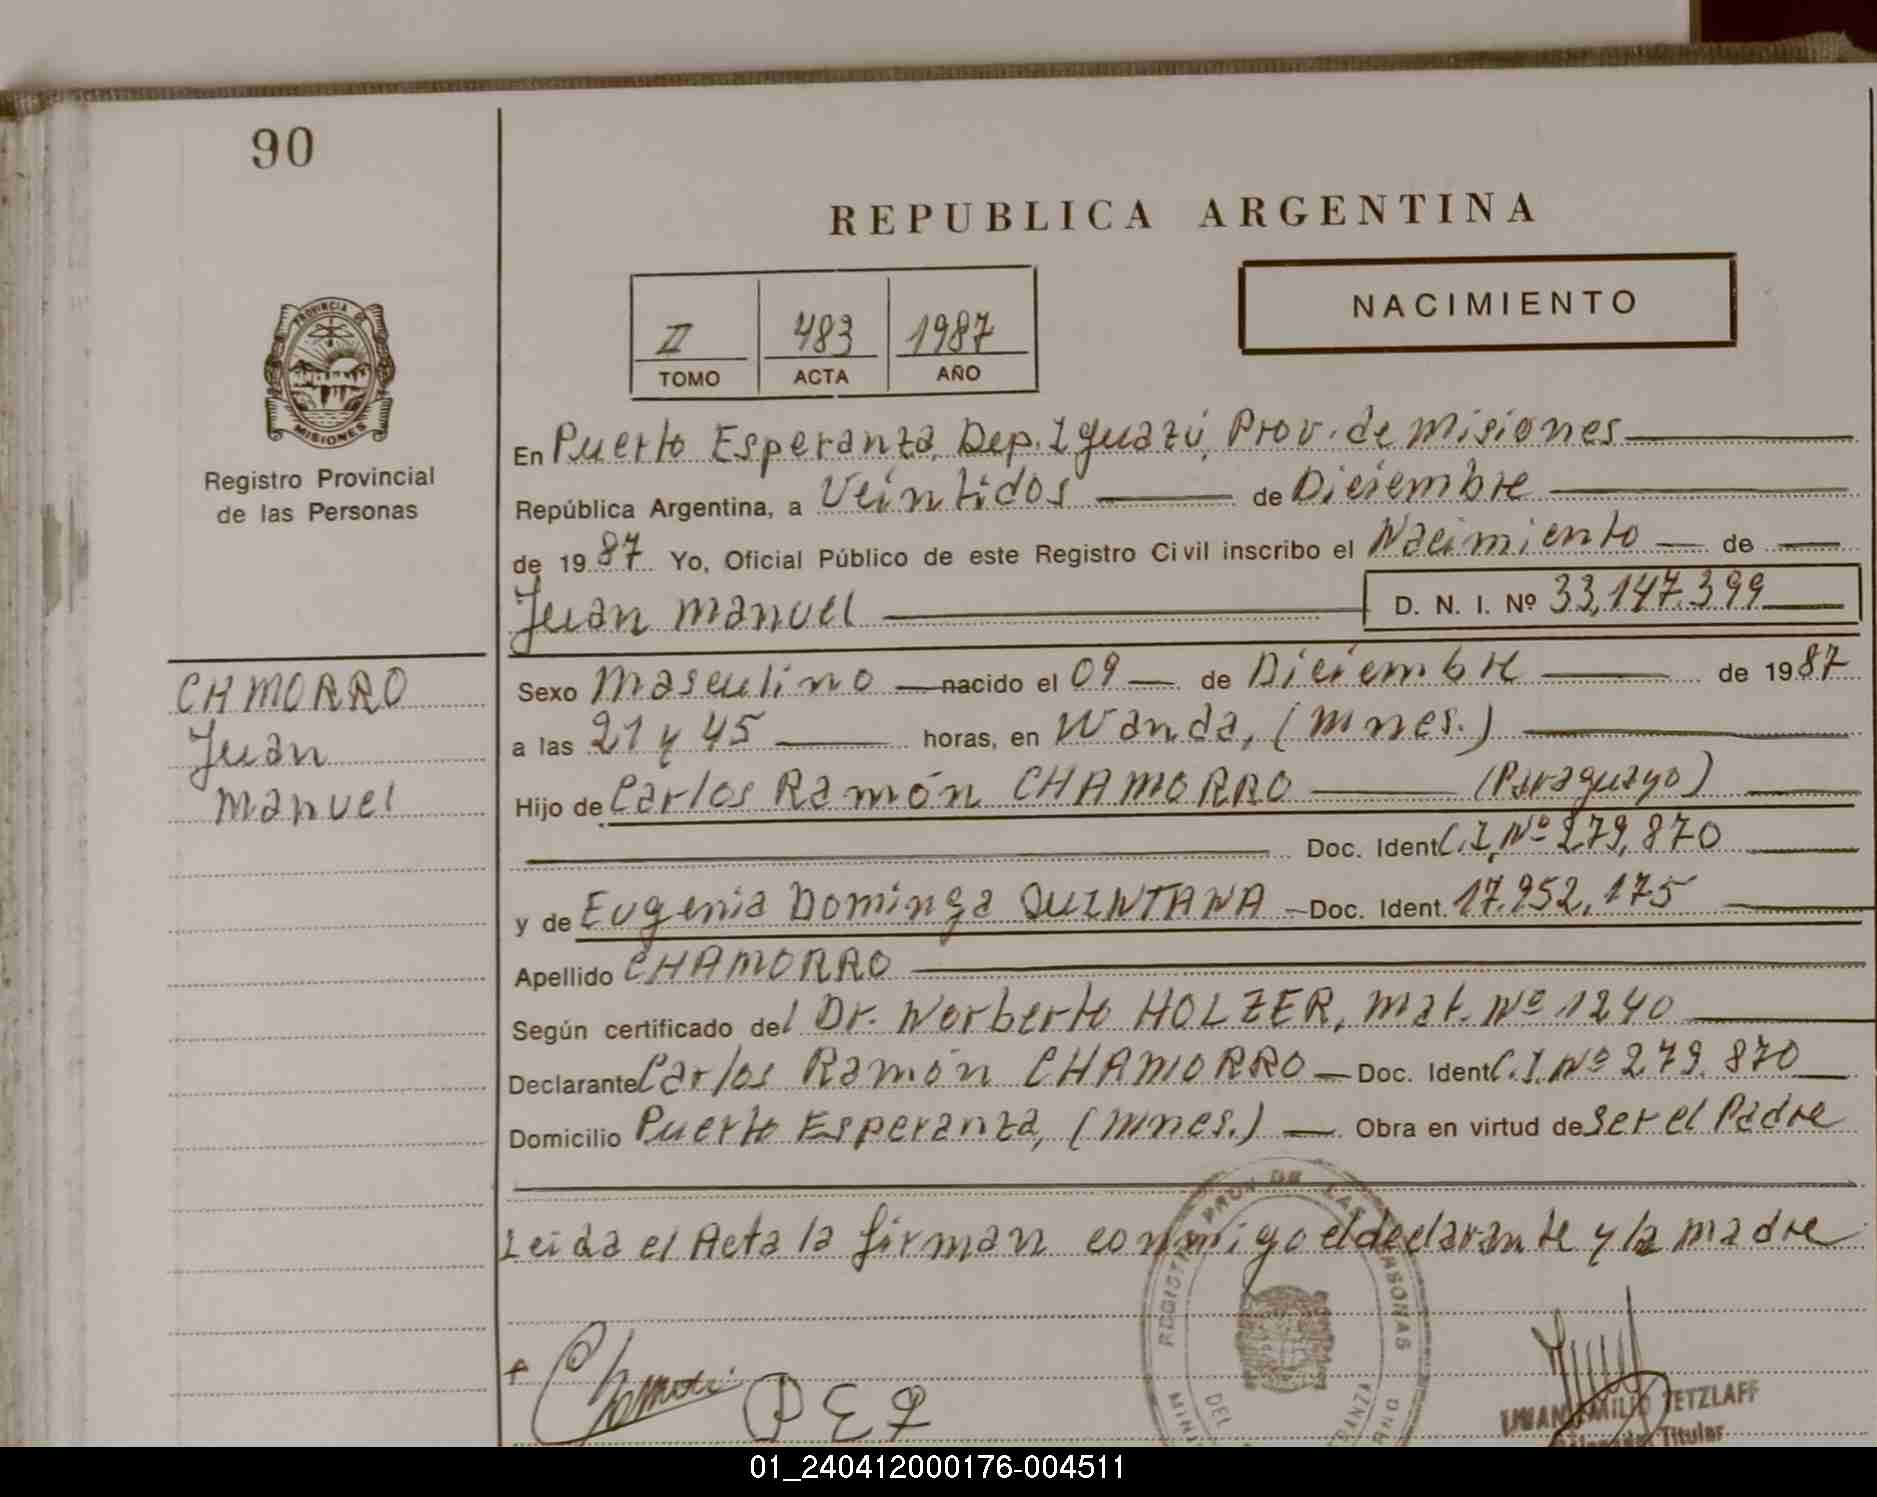 90
REPUBLICA ARGENTINA
NACIMIENTO
II 483 1987
TOMO ACTA AÑO
PROVINCIA DE
MISIONES
Registro Provincial
de las Personas
En Puerto Esperanza, Dep. Iguazú, Prov. de Misiones
República Argentina, a Veintidos de Diciembre
de 1987 Yo, Oficial Público de este Registro Civil inscribo el Nacimiento de
Juan Manuel D. N. I. Nº 33.147.399
CHAMORRO
Juan
Manuel
Sexo Masculino nacido el 09 de Diciembre de 1987
a las 21 y 45 horas, en Wanda, (Mnes.)
Hijo de Carlos Ramón CHAMORRO (Paraguayo)
Doc. Ident. C.I. Nº 279.870
y de Eugenia Dominga QUINTANA Doc. Ident. 17.952.175
Apellido CHAMORRO
Según certificado del Dr. Norberto HOLZER, Mat. Nº 1240
Declarante Carlos Ramón CHAMORRO Doc. Ident. C.I. Nº 279.870
Domicilio Puerto Esperanza, (Mnes.) Obra en virtud de ser el Padre
Leida el Acta la firman conmigo el declarante y la madre
REGISTRO PROV. DE LAS PERSONAS
DEL
TETZLAFF
Titular
01_240412000176-004511